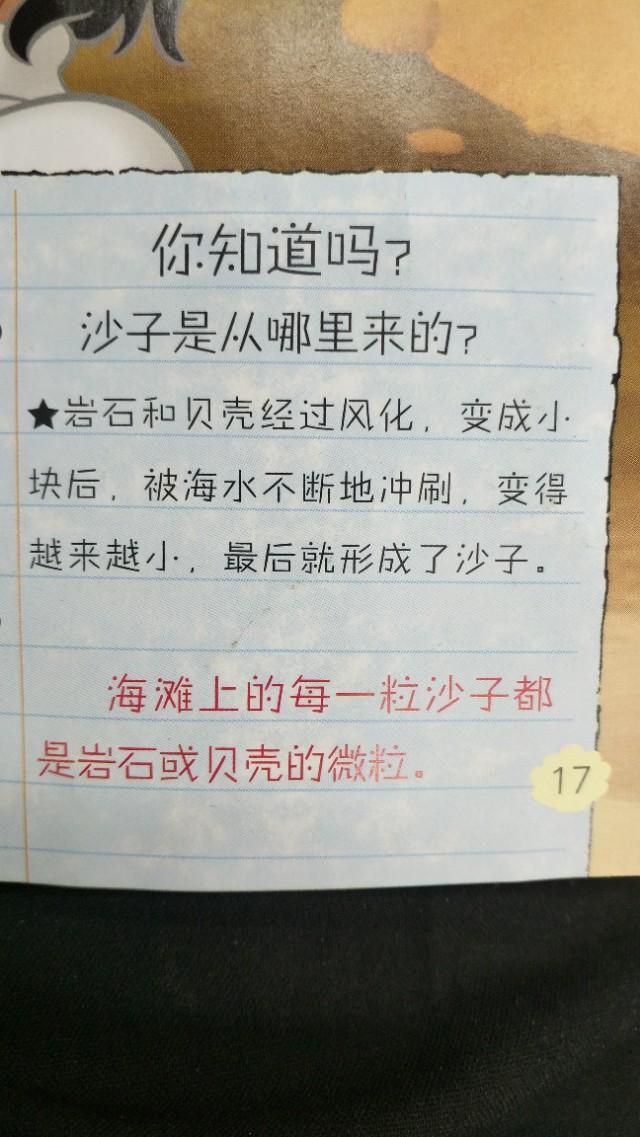 你知道吗?
沙子是从哪里来的?
★岩石和贝壳经过风化，变成小
块后，被海水不断地冲刷，变得
越来越小，最后就形成了沙子。
海滩上的每一粒沙子都
是岩石或贝壳的微粒。
17